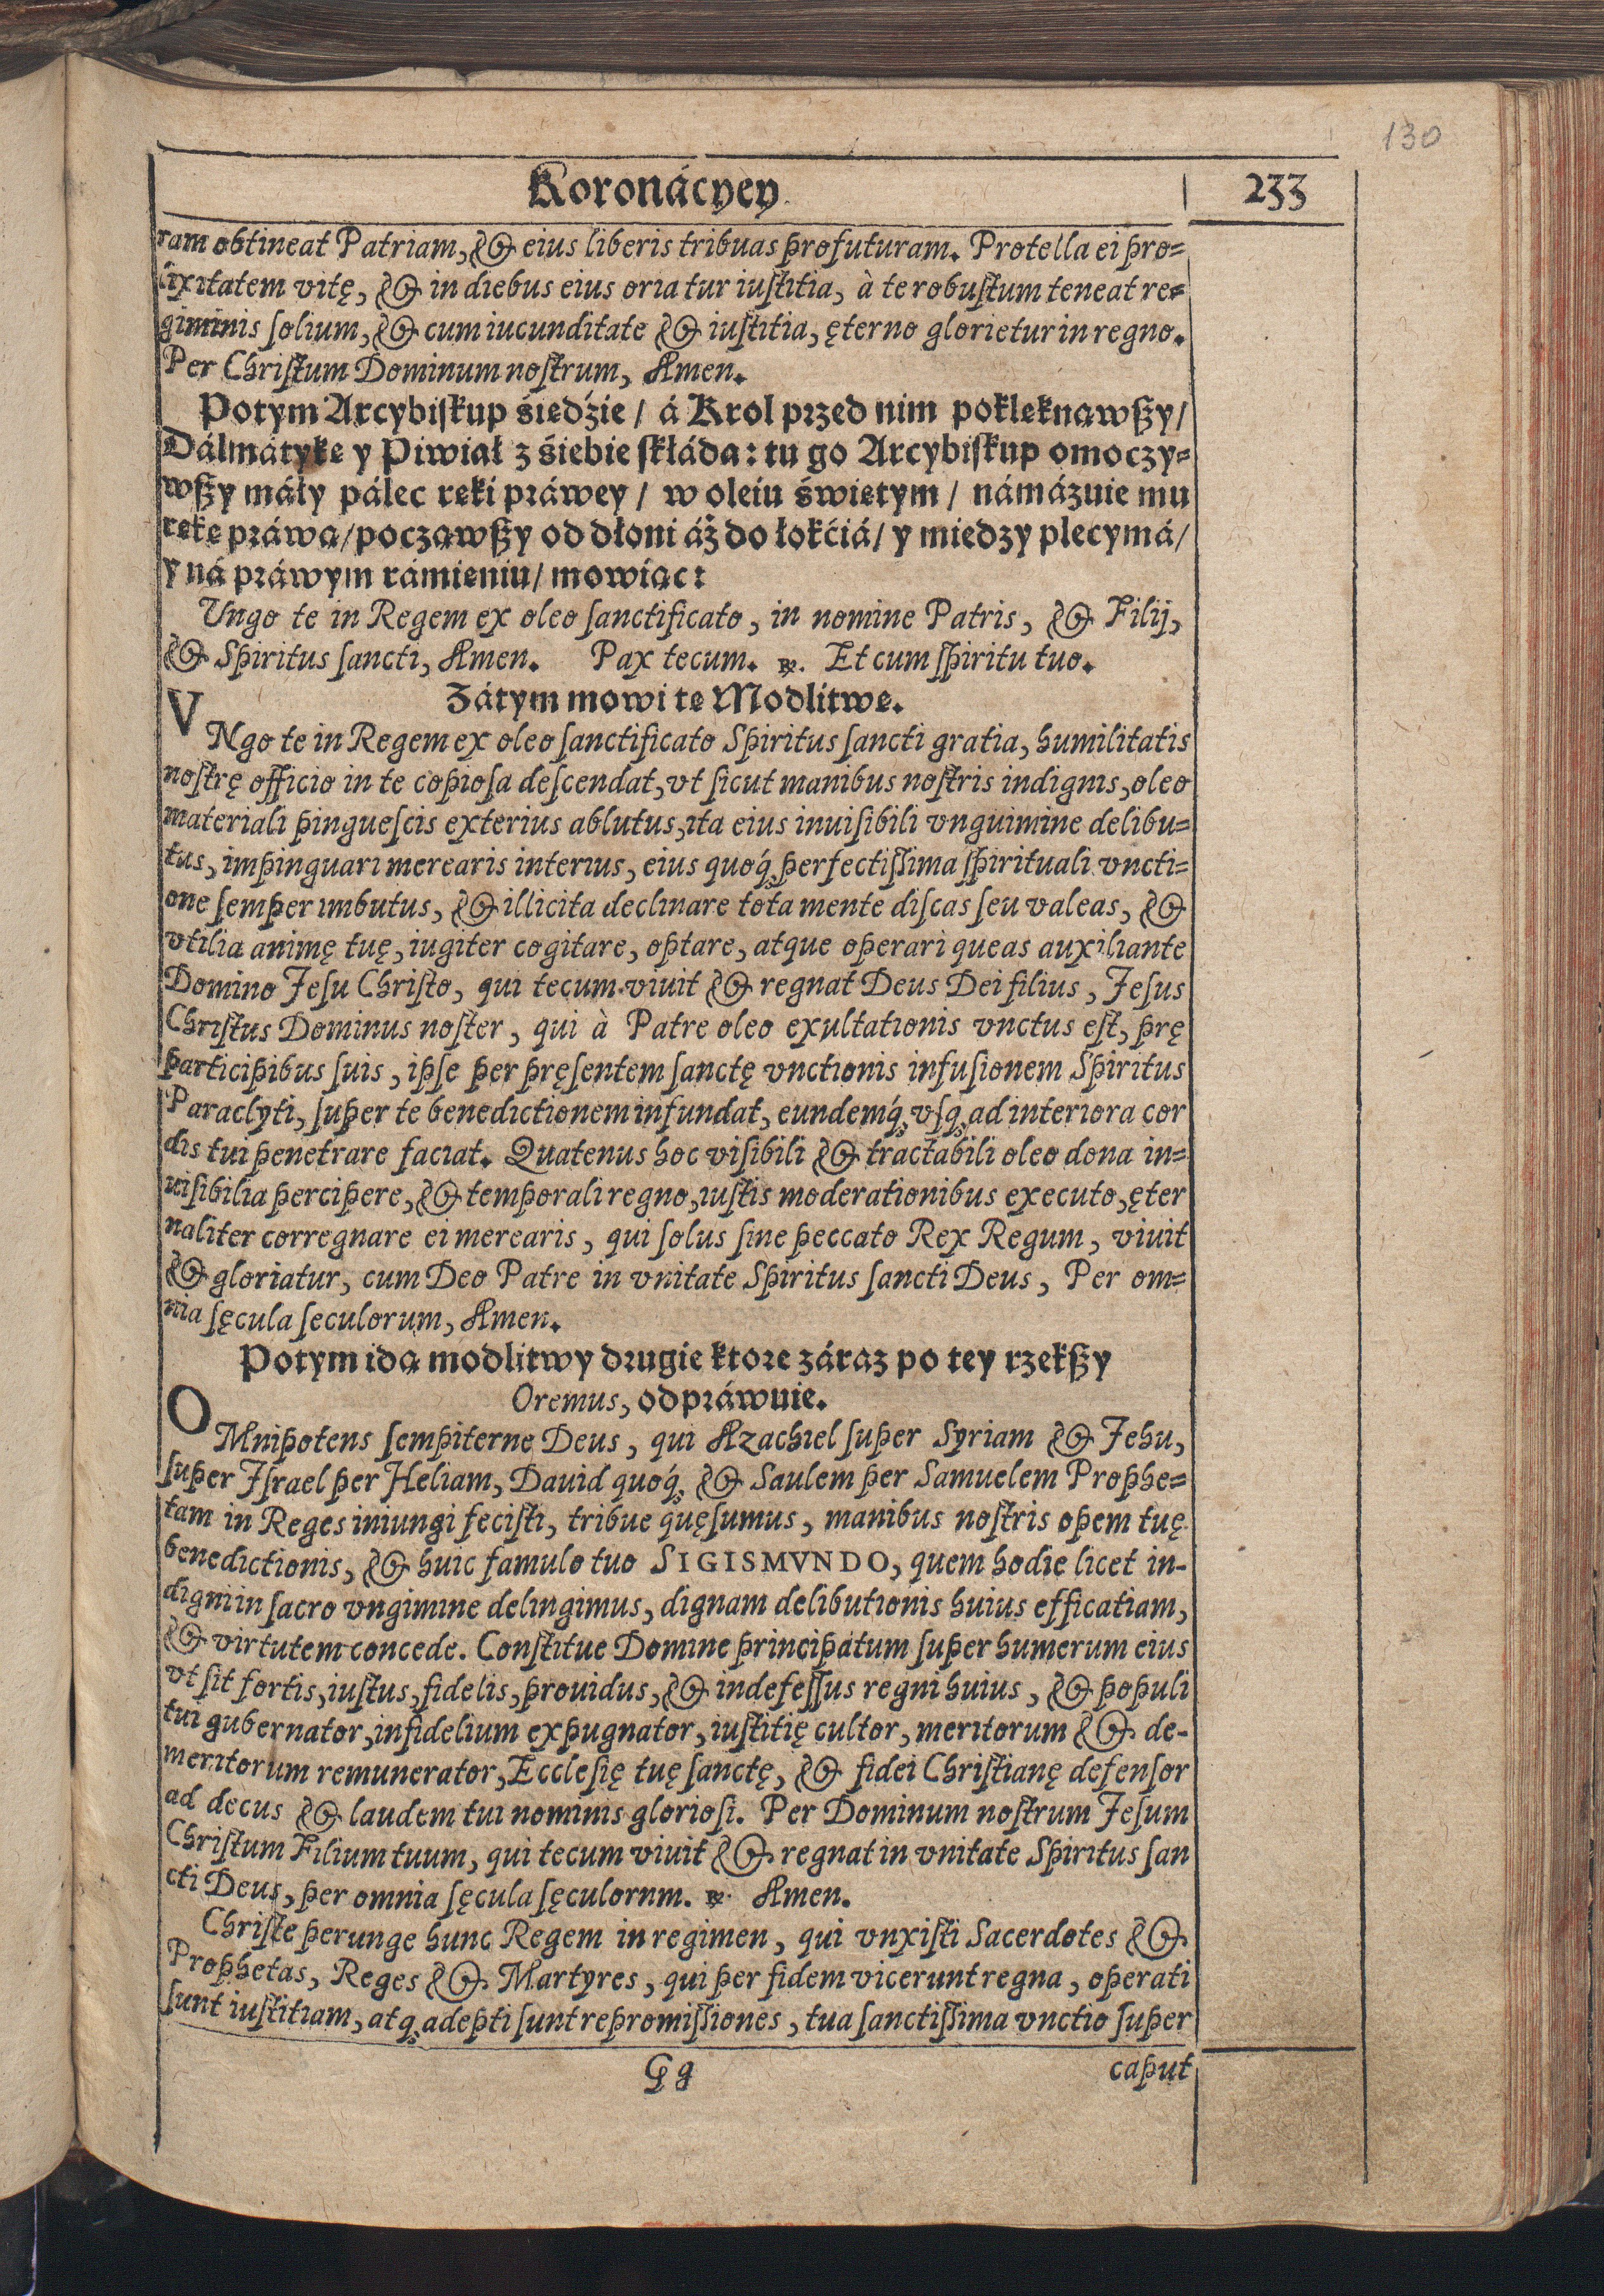 130
Koronácyey. 233
ram obtineat Patriam, & eius liberis tribuas profuturam. Protella ei pro=
lixitatem vitę, & in diebus eius oria tur iuſtitia, à te robuſtum teneat re=
giminis ſolium, & cum iucunditate & iuſtitia, ęterno glorietur in regno.
Per Chriſtum Dominum noſtrum, Amen.
Potym Arcybiſkup śiedźie / á Krol przed nim poklęknąwſzy /
Dálmátykę y Piwiał z śiebie ſkłáda: tu go Arcybiſkup omoczy=
wſzy máły pálec ręki práwey / w oleiu świętym / námázuie mu
rękę práwą / począwſzy od dłoni áż do łokćiá / y miedzy plecymá /
y ná práwym rámieniu / mowiąc:
Ungo te in Regem ex oleo ſanctificato, in nomine Patris, & Filij,
& Spiritus ſancti, Amen. Pax tecum. ꝶ. Et cum ſpiritu tuo.
Zátym mowi tę Modlitwę.
VNgo te in Regem ex oleo ſanctificato Spiritus ſancti gratia, humilitatis
noſtrę officio in te copioſa deſcendat, vt ſicut manibus noſtris indignis, oleo
materiali pingueſcis exterius ablutus, ita eius inuiſibili vnguimine delibu=
tus, impinguari merearis interius, eius quoq́; perfectiſſima ſpirituali vncti=
one ſemper imbutus, & illicita declinare tota mente diſcas ſeu valeas, &
vtilia animę tuę, iugiter cogitare, optare, atque operari queas auxiliante
Domino Jeſu Chriſto, qui tecum viuit & regnat Deus Dei filius, Jeſus
Chriſtus Dominus noſter, qui à Patre oleo exultationis vnctus eſt, prę
participibus ſuis, ipſe per pręſentem ſanctę vnctionis infuſionem Spiritus
Paraclyti, ſuper te benedictionem infundat, eundemq́; vſq; ad interiora cor
dis tui penetrare faciat. Quatenus hoc viſibili & tractabili oleo dona in=
uiſibilia percipere, & temporali regno, iuſtis moderationibus executo, ęter
naliter corregnare ei merearis, qui ſolus ſine peccato Rex Regum, viuit
& gloriatur, cum Deo Patre in vnitate Spiritus ſancti Deus, Per om=
nia ſęcula ſeculorum, Amen.
Potym idą modlitwy drugie ktore záraz po tey rzekſzy
Oremus, odpráwuie.
OMnipotens ſempiterne Deus, qui Azachiel ſuper Syriam & Jehu,
ſuper Jſrael per Heliam, Dauid quoq́; & Saulem per Samuelem Prophe=
tam in Reges iniungi feciſti, tribue quęſumus, manibus noſtris opem tuę
benedictionis, & huic famulo tuo SIGISMVNDO, quem hodie licet in-
digni in ſacro vngimine delingimus, dignam delibutionis huius efficatiam,
& virtutem concede. Conſtitue Domine principatum ſuper humerum eius
vt ſit fortis, iuſtus, fidelis, prouidus, & indefeſſus regni huius, & populi
tui gubernator, infidelium expugnator, iuſtitię cultor, meritorum & de-
meritorum remunerator, Eccleſię tuę ſanctę, & fidei Chriſtianę defenſor
ad decus & laudem tui nominis glorioſi. Per Dominum noſtrum Jeſum
Chriſtum Filium tuum, qui tecum viuit & regnat in vnitate Spiritus ſan
cti Deus, per omnia ſęcula ſęculornm. ꝶ. Amen.
Chriſte perunge hunc Regem in regimen, qui vnxiſti Sacerdotes &
Prophetas, Reges & Martyres, qui per fidem vicerunt regna, operati
ſunt iuſtitiam, atq; adepti ſunt repromiſſiones, tua ſanctiſſima vnctio ſuper
Gg caput